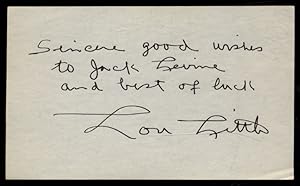 Sincere good wishes
to Jack Levine
and best of luck
Lou Little